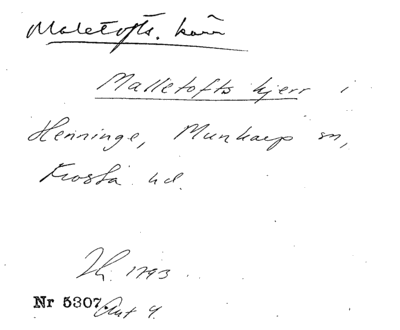 Maletofts. kärr
Malletofts kjerr i
Henninge, Munkarp sn,
Frosta hd.
1793
Nr 5307 Akt 4.